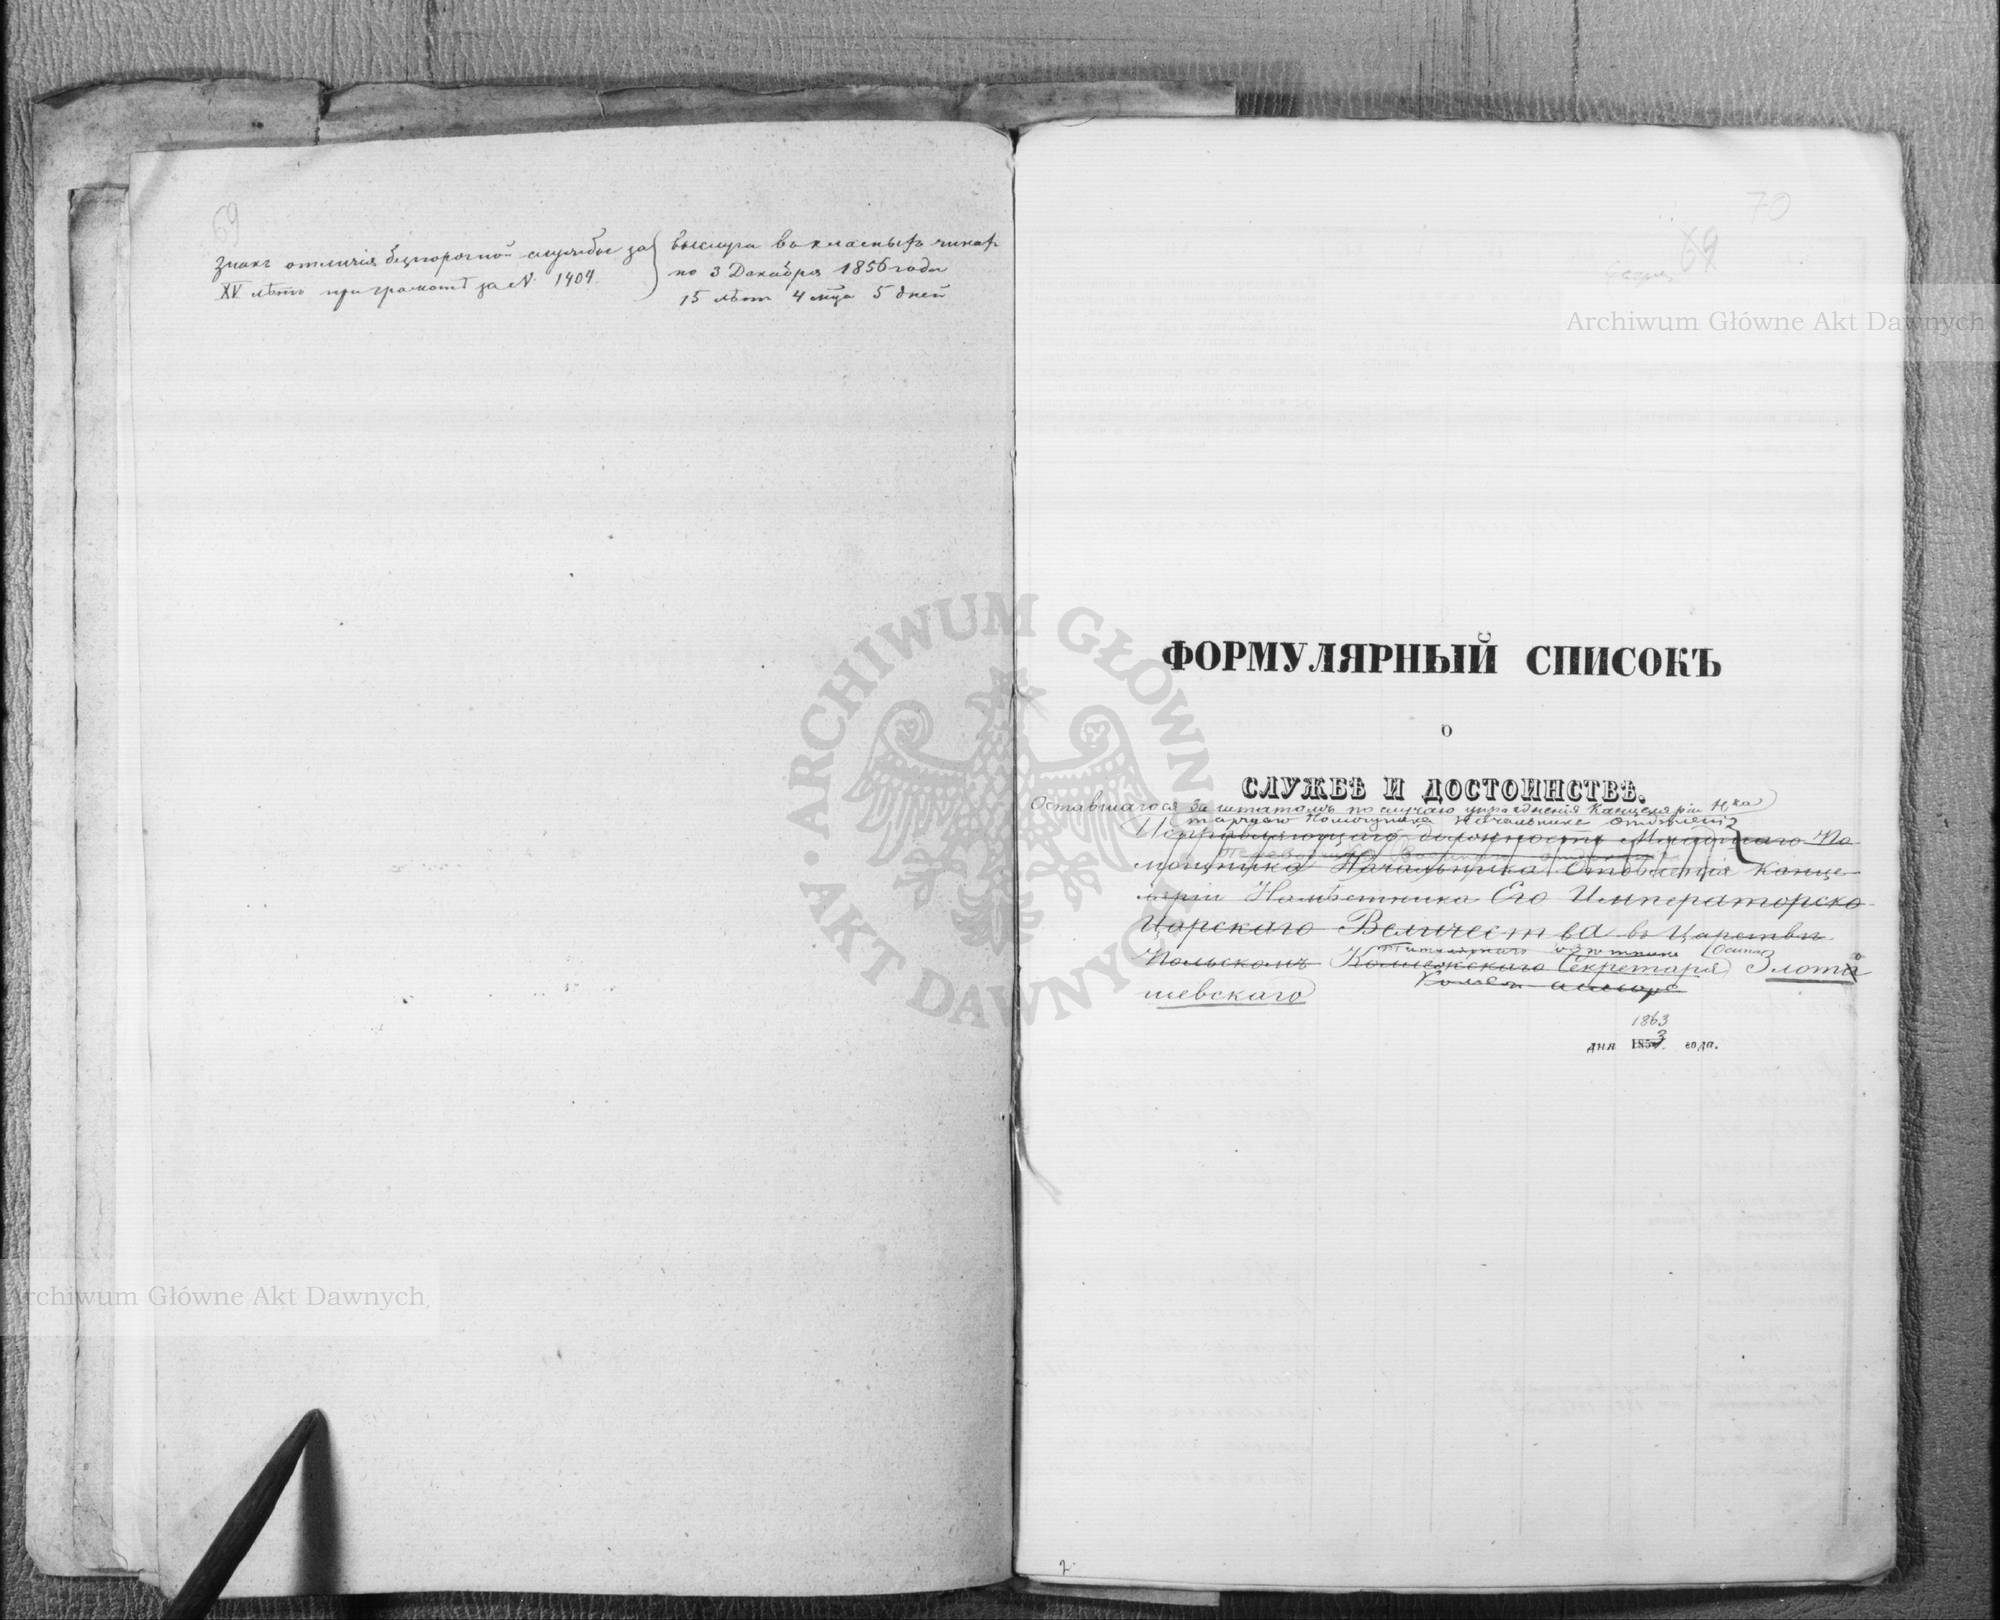 69
знакъ отличія безпорочной службы за
XV лѣтъ при грамотѣ за N. 1404.
выслуга въ класныхъ чинахъ
по 3 Декабря 1856 года
15 лѣтъ 4 мца 5 дней
70
69
Archiwum Główne Akt Dawnych
ФОРМУЛЯРНЫЙ СПИСОКЪ
О
СЛУЖБѢ И ДОСТОИНСТВѢ.
Оставшагося за штатомъ по случаю упраздненія Канцеляріи Нка
старшаго Помощника Начальника Отдѣленія
Исправляющаго должность Младшаго По-
мощника Начальника Отдѣленія Канце-
ляріи Намѣстника Его Императорско-
Царскаго Величества въ Царствѣ
Титулярнаго Совѣтника (Осипа)
Польскомъ Коллежскаго Секретаря Злота
шевскаго
Коллеж. ассесора
1863
дня 1853. года.
ARCHIWUM GŁÓWNE AKT DAWNYCH
Archiwum Główne Akt Dawnych
2.